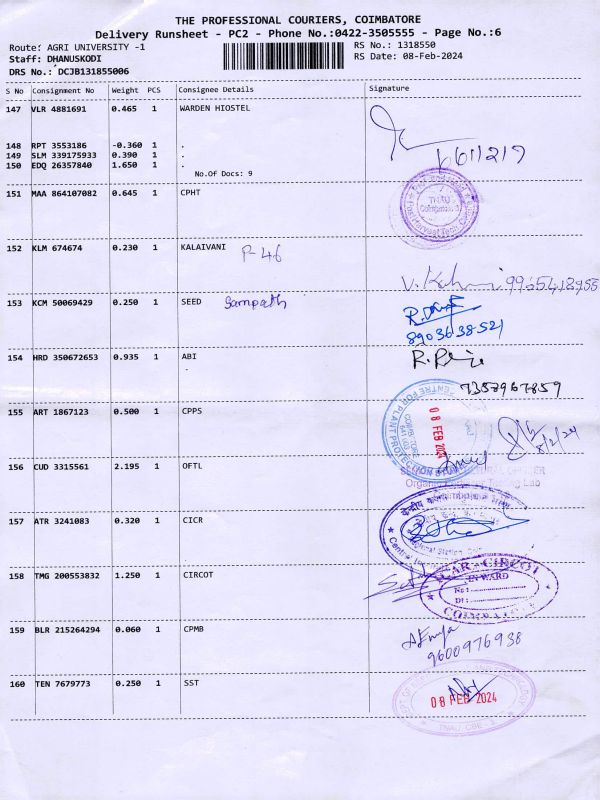 THE PROFESSIONAL COURIERS, COIMBATORE
Delivery Runsheet - PC2 - Phone No.:0422-3505555 - Page No.:6
Route: AGRI UNIVERSITY -1
RS No.: 1318550
Staff: DHANUSKODI
RS Date: 08-Feb-2024
DRS No.: DCJB131855006
S No Consignment No Weight PCS Consignee Details Signature
147 VLR 4881691 0.465 1 WARDEN HIOSTEL
148 RPT 3553186 -0.360 1 .
149 SLM 339175933 0.390 1 .
150 EDQ 26357840 1.650 1 .
No.Of Docs: 9
151 MAA 864107082 0.645 1 CPHT
TNAU
Coimbatore
152 KLM 674674 0.230 1 KALAIVANI P-46
153 KCM 50069429 0.250 1 SEED Sampath
8903638521
154 HRD 350672653 0.935 1 ABI
.
7358967859
155 ART 1867123 0.500 1 CPPS
CENTRE FOR PLANT PROTECTION
08 FEB 2024
8/2/24
156 CUD 3315561 2.195 1 OFTL
157 ATR 3241083 0.320 1 CICR
158 TMG 200553832 1.250 1 CIRCOT
CIRCOT
INWARD
No :
Dt :
159 BLR 215264294 0.060 1 CPMB
9600976938
160 TEN 7679773 0.250 1 SST
08 FEB 2024